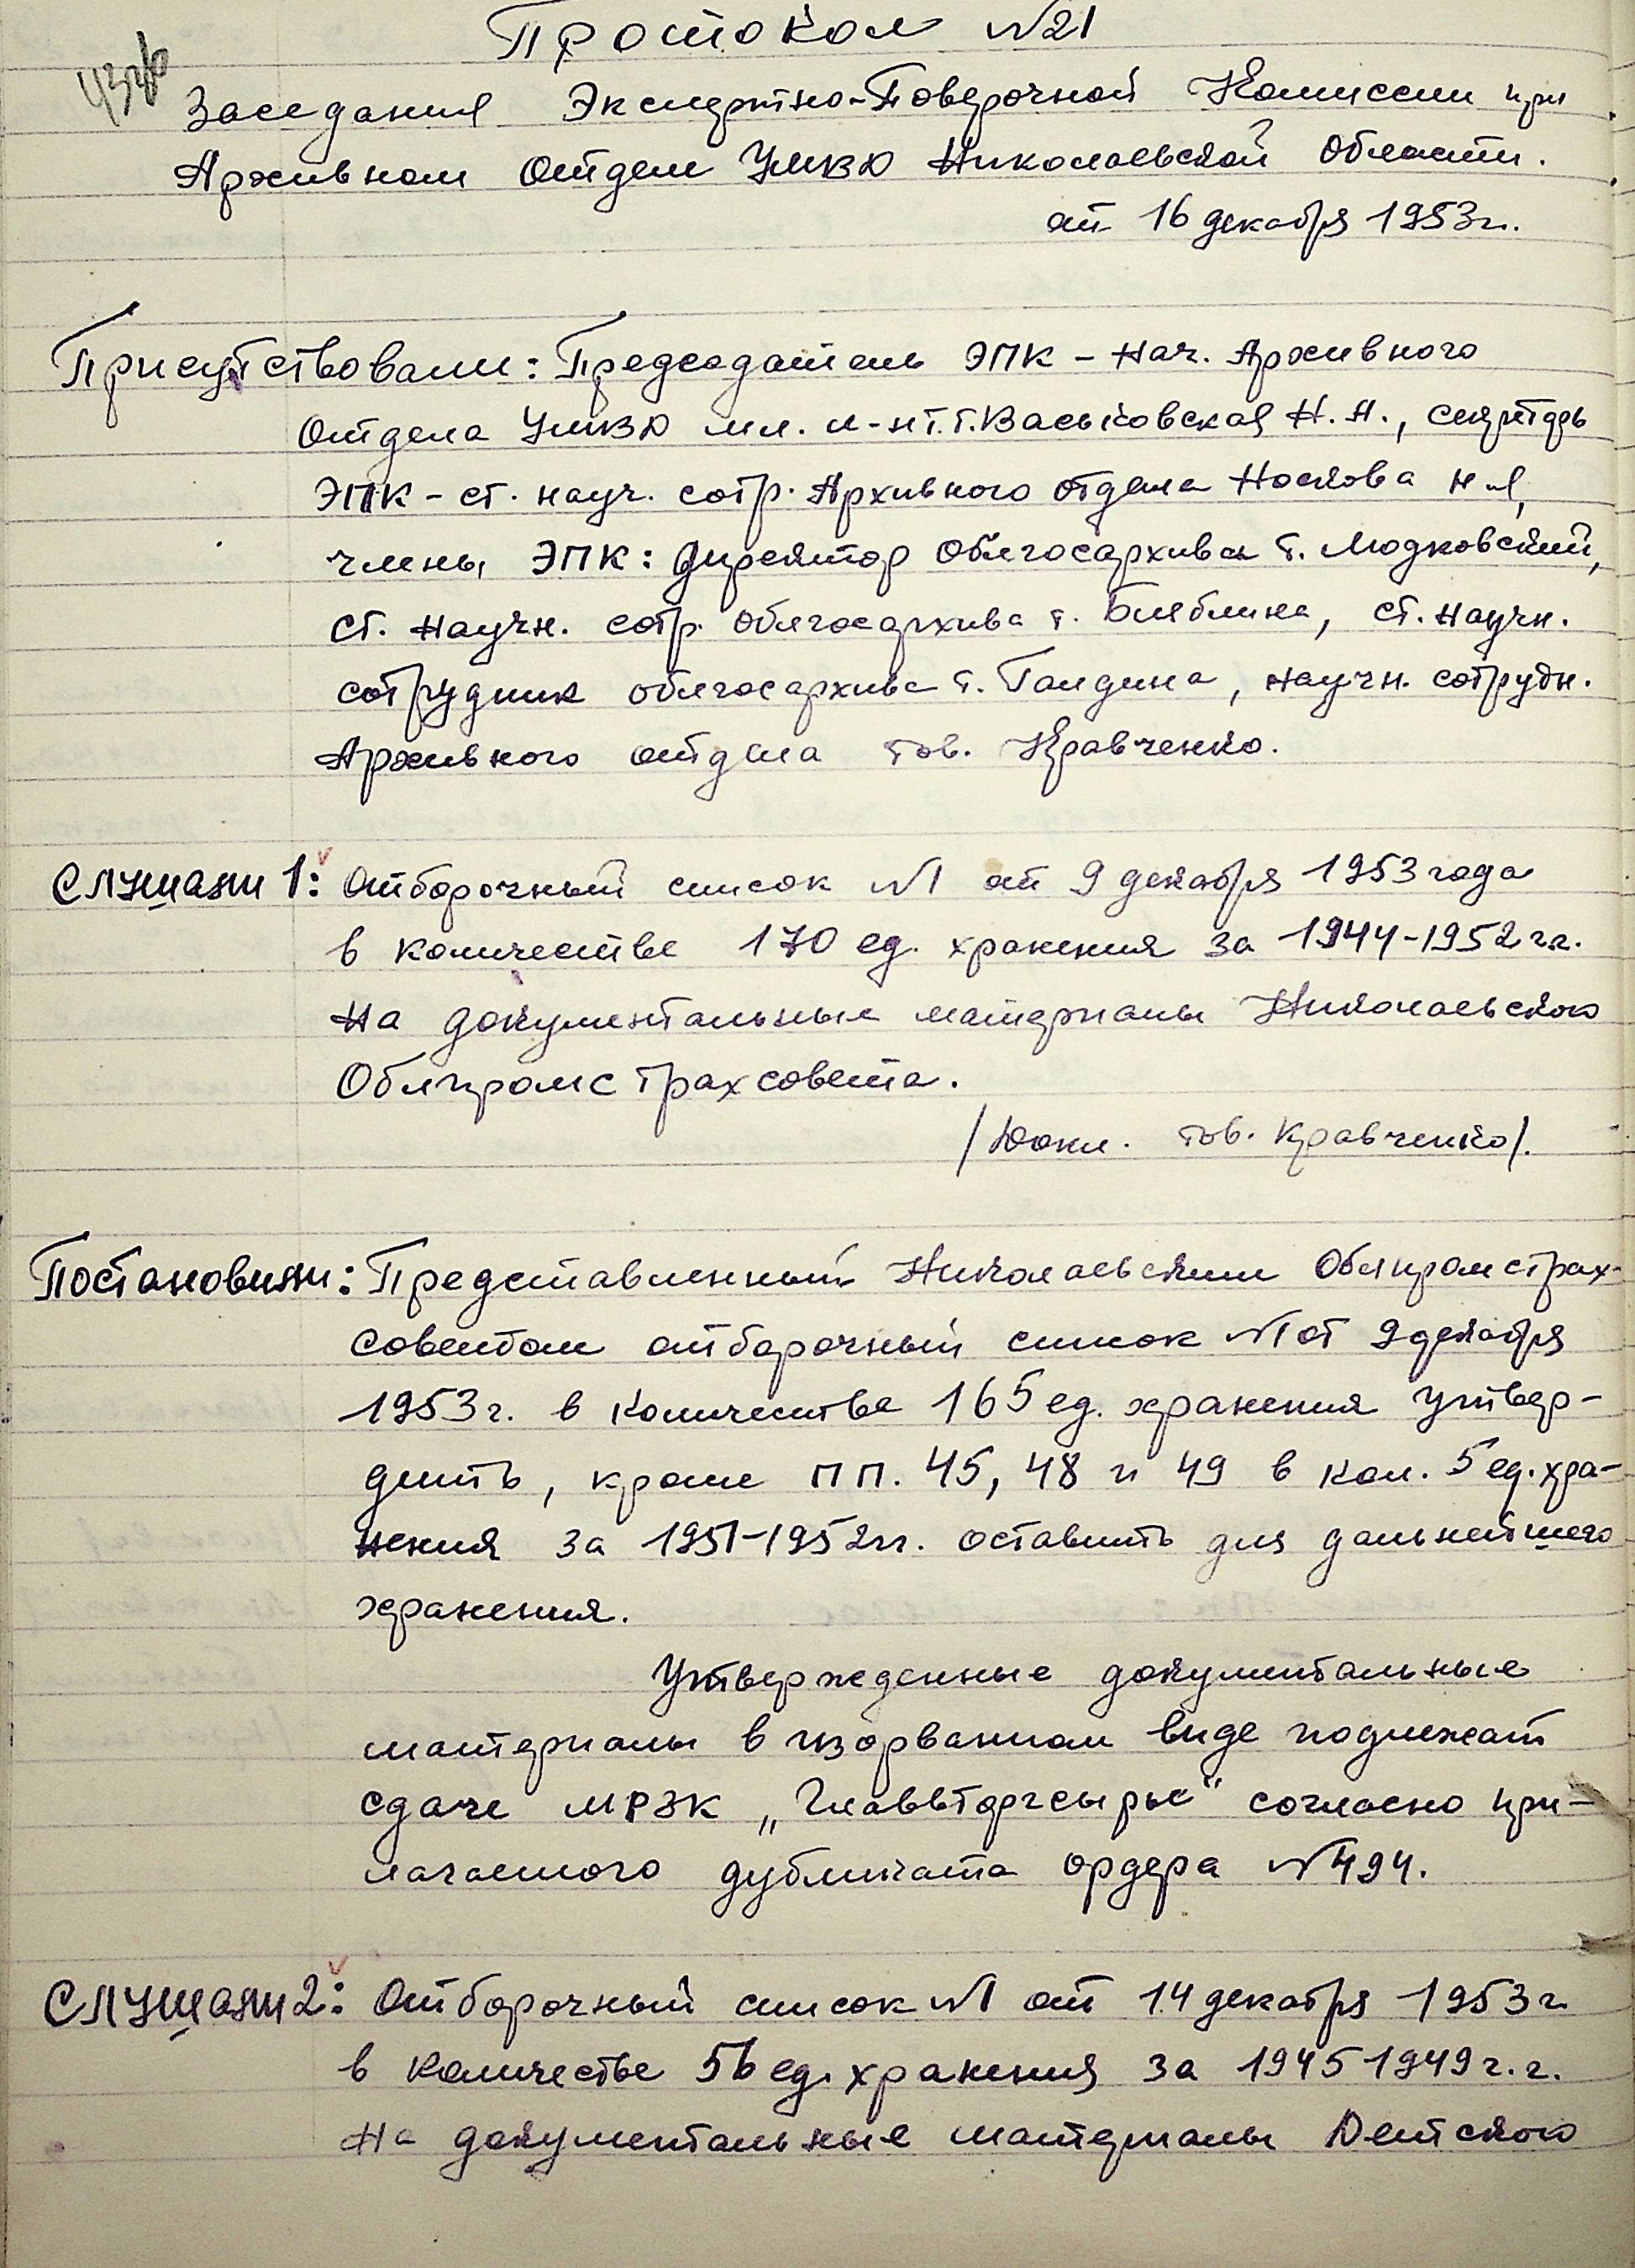 Протокол №21
Заседания Экспертно-Поверочной Комиссии при
Архивном Отделе УМВД Николаевской Области.
от 16 декабря 1953г.
Присутствовали: Председатель ЭПК - Нач. Архивного
Отдела УМВД мл. л-нт. т. Васьковская Н. Н., секретарь
ЭПК - ст. науч. сотр. Архивного отдела Носкова
члены ЭПК: Директор Облгосархива т. Людковский,
ст. научн. сотр. облгосархива т. Бляблина, ст. научн.
сотрудник облгосархива т. Галдина, научн. сотрудн.
Архивного отдела тов. Кравченко.
Слушали 1: Отборочный список №1 от 9 декабря 1953 года
в количестве 170 ед. хранения за 1944-1952 гг.
На документальные материалы Николаевского
Облпромстрахсовета.
/Докл. тов. Кравченко/.
Постановили: Представленный Николаевским Облпромстрах-
советом отборочный список №1 от 9 декабря
1953 г. в количестве 165 ед. хранения утвер-
дить, кроме п п. 45, 48 и 49 в кол. 5 ед. хра-
нения за 1951-1952 гг. оставить для дальнейшего
хранения.
Утвержденные документальные
материалы в изорванном виде подлежат
сдаче МРЗК „Главвторсырье“ согласно при-
лагаемого дубликата ордера №494.
Слушали 2: Отборочный список №1 от 14 декабря 1953 г.
в количестве 56 ед. хранения за 1945 1949 г. г.
На документальные материалы Детского